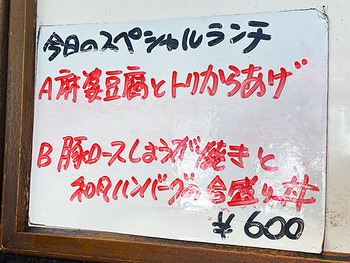 今日のスペシャルランチ
A 麻婆豆腐とトリからあげ
B 豚ロースしょうが焼きと
和風ハンバーグの合盛り丼
¥600